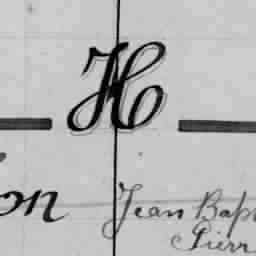 H
on Jean Bap
Pierr